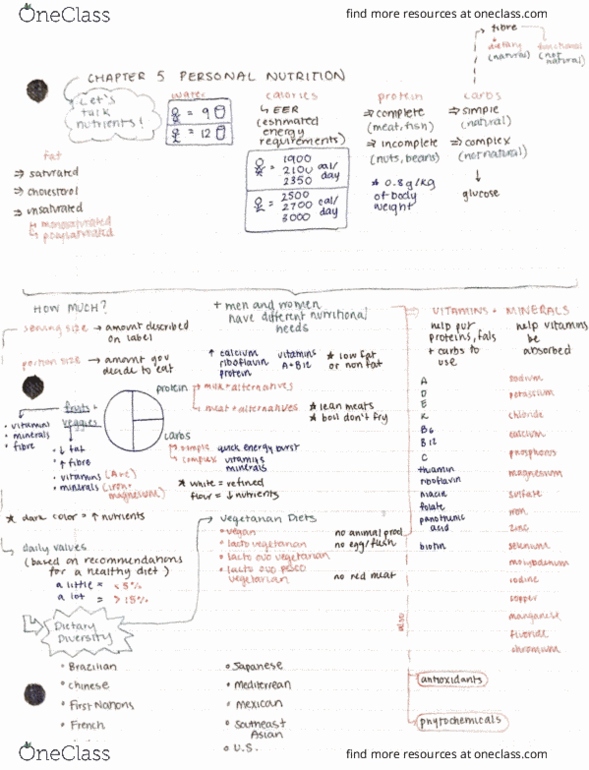 OneClass
find more resources at oneclass.com
fibre
dietary
(natural)
functional
(not
natural)
CHAPTER 5 PERSONAL NUTRITION
Let's
talk
nutrients!
water
= 9
= 12
calories
↳ EER
(estimated
energy
requirements)
= 1900
2100 cal/
2350 day
= 2500
2700 cal/
3000 day
protein
⇒ complete
(meat, fish)
⇒ incomplete
(nuts, beans)
* 0.8g/kg
of body
weight
carbs
⇒ simple
(natural)
⇒ complex
(not natural)
↓
glucose
fat
⇒ saturated
⇒ cholestrol
⇒ unsaturated
↳ monosaturated
↳ polysaturated
HOW MUCH?
serving size → amount described
on label
portion size → amount you
decide to eat
+ men and women
have different nutritional
needs
↑ calcium
riboflavin
protein
vitamins
A + B12
* low fat
or non fat
protein
milk + alternatives
meat + alternatives
* lean meats
* boil don't fry
fruits +
veggies
• vitamins
• minerals
• fibre
• ↓ fat
• ↑ fibre
• vitamins (A+C)
• minerals (iron+
magnesium)
carbs
simple quick energy burst
complex vitamins
minerals
* white = refined
flour = ↓ nutrients
* dark color = ↑ nutrients
daily values
(based on recommendations
for a healthy diet)
a little = <5%
a lot = >15%
Vegetarian Diets
• vegan no animal prod
• lacto vegetarian no egg/flesh
• lacto ovo vegetarian
• lacto ovo pesco
vegetarian no red meat
Dietary
Diversity
• Brazilian
• chinese
• First Nations
• French
• Japanese
• Mediterrean
• mexican
• Southeast
Asian
• U.S.
VITAMINS + MINERALS
help put
proteins, fats
+ carbs to
use
help vitamins
be
absorbed
A
D
E
K
B6
B12
C
thiamin
riboflavin
niacin
folate
pantothenic
acid
biotin
sodium
potassium
chloride
calcium
phosphorus
magnesium
sulfate
iron
zinc
selenium
molybdenum
iodine
copper
manganese
fluoride
chromium
also
antioxidants
phytochemicals
OneClass
find more resources at oneclass.com